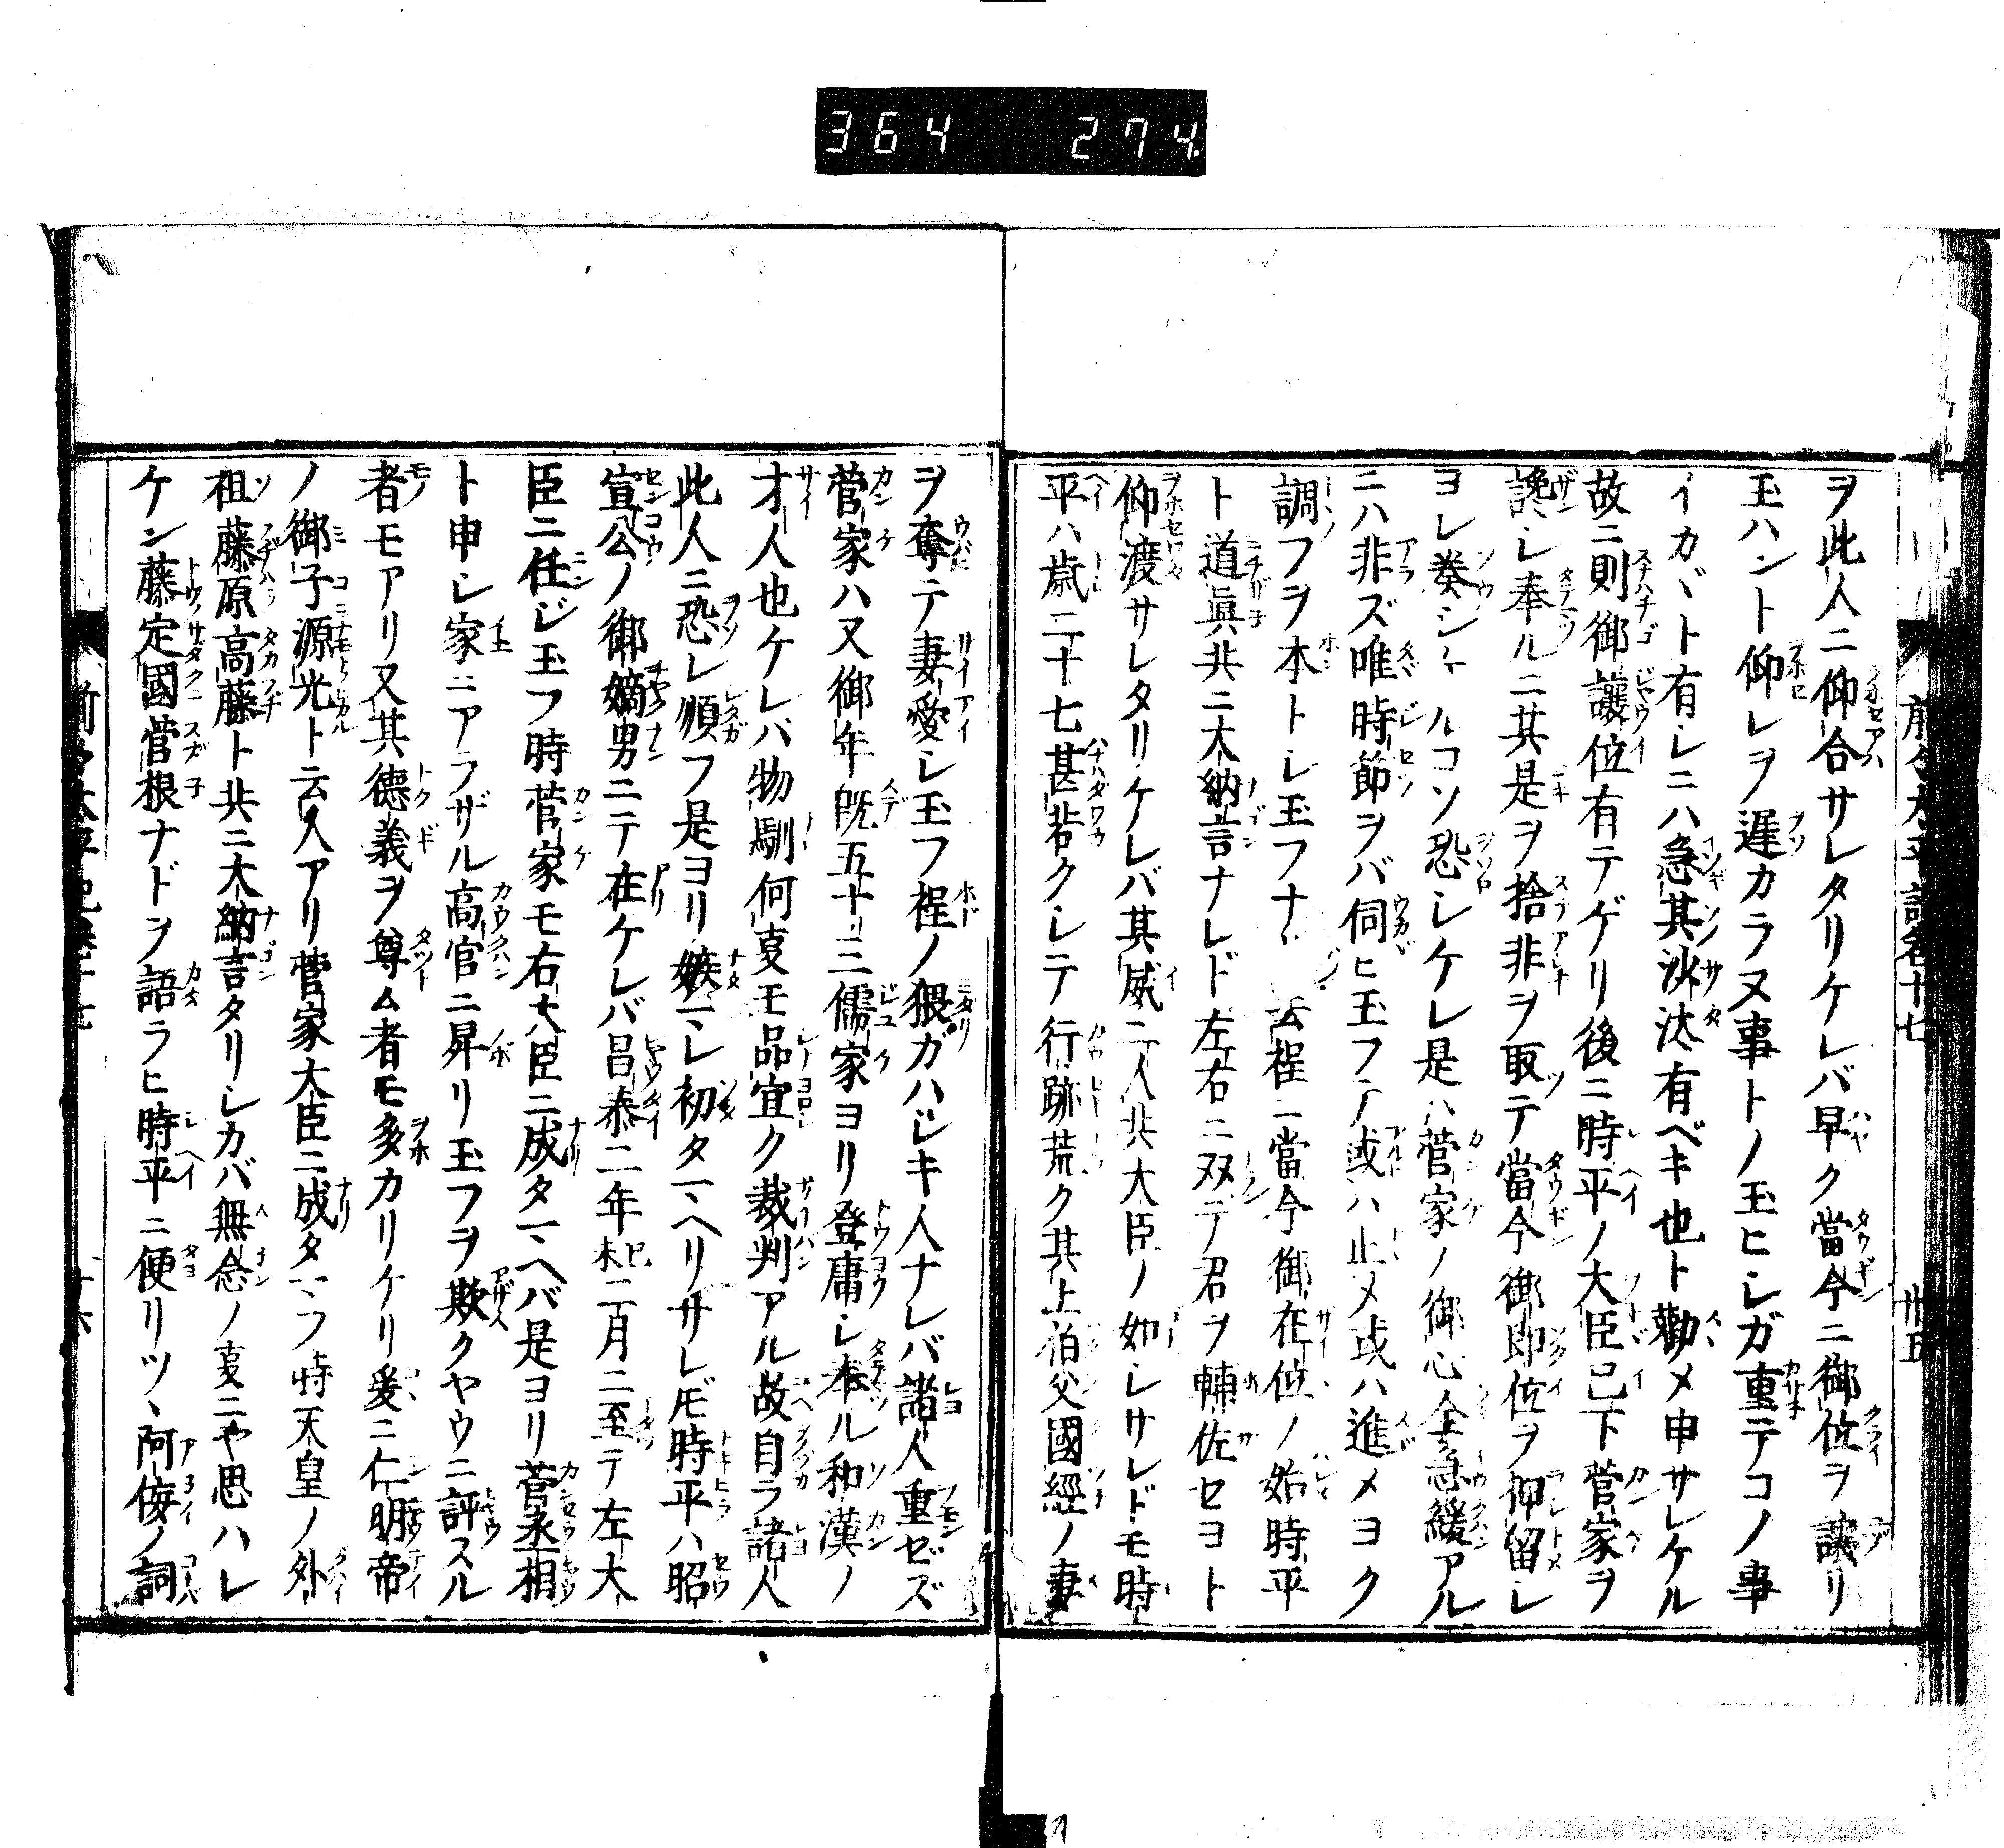 364 274
前々太平記卷十七 卅五
ヲ此人ニ仰合サレタリケレバ早ク當今ニ御位ヲ讓リ
玉ハント仰レヲ遲カラヌ事トノ玉ヒシガ重テコノ事
イカヾト有レニハ急其沙汰有ベキ也ト勸メ申サレケル
故ニ則御讓位有テゲリ後ニ時平ノ大臣已下菅家ヲ
讒シ奉ルニ其是ヲ捨非ヲ取テ當今御即位ヲ仰留シ
ヨレ奏シ ルコソ恐シケレ是ハ菅家ノ御心全急緩アル
ニハ非ズ唯時節ヲバ伺ヒ玉フテ或ハ止メ或ハ進メヨク
調フヲ本トシ玉フナ 云程ニ當今御在位ノ始時平
ト道眞共ニ大納言ナレド左右ニ双テ君ヲ輔佐セヨト
仰渡サレタリケレバ其威二人共大臣ノ如シサレドモ時
平ハ歳二十七甚若クシテ行跡荒ク其上伯父國經ノ妻
ヲ奪テ妻愛シ玉フ程ノ猥ガハシキ人ナレバ諸人重ゼズ
菅家ハ又御年既五十三儒家ヨリ登庸シ奉ル和漢ノ
才人也ケレバ物馴何叓モ品宜ク裁判アル故自ラ諸人
此人ニ恐レ順フ是ヨリ嫉マシ初タマヘリサレ𪜈時平ハ昭
宣公ノ御嫡男ニテ在ケレバ昌泰二年己未二月ニ至テ左大
臣ニ任ジ玉フ時菅家モ右大臣ニ成タマヘバ是ヨリ菅丞相
ト申シ家ニアラザル高官ニ昇リ玉フヲ欺クヤウニ評スル
者モアリ又其德義ヲ尊ム者モ多カリケリ爰ニ仁明帝
ノ御子源光ト云人アリ菅家大臣ニ成タマフ時天皇ノ外
祖藤原高藤ト共ニ大納言タリシカバ無念ノ叓ニヤ思ハレ
ケン藤定國菅根ナドヲ語ラヒ時平ニ便リツヽ阿侫ノ詞